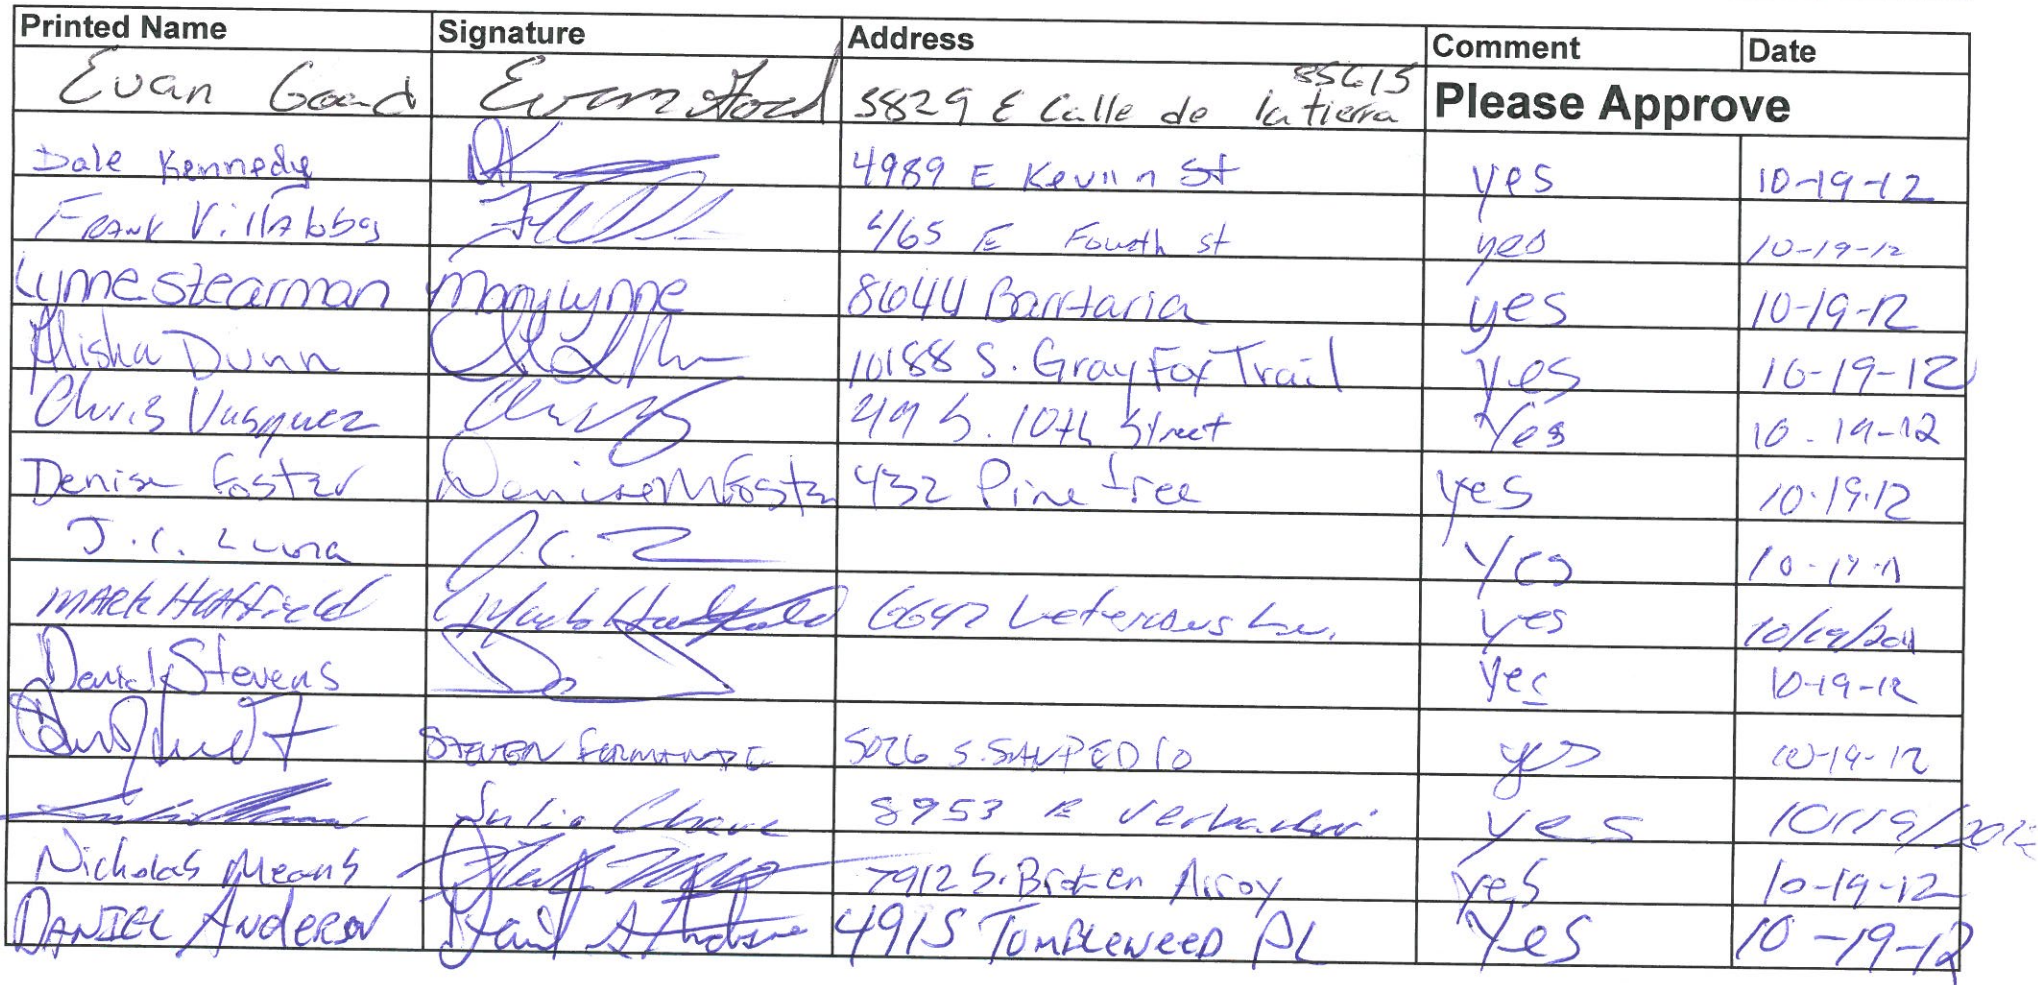 Printed Name Signature Address Comment Date
Evan Goad 85615
5829 E Calle de la tierra Please Approve
Dale Kennedy 4989 E St yes 10-19-12
Frank 4165 E Fourth St yes 10-19-12
Lynne Stearman Mary Lynne 8644 Barrtaria yes 10-19-12
Alisha Dunn 10188 S. Gray Fox Trail Yes 10-19-12
Chris Vasquez 49 S. 10th Street Yes 10-19-12
Denise Foster Denise M Foster 432 Pine tree yes 10.19.12
J.C. Luna J.C. Yes
Mark Hatfield Mark Hatfield 6647 Ln. yes
Daniel Stevens Yes 10-19-12
STEVEN 5026 S. SAN PEDRO yes 10-19-12
Julia 8953 E yes 10/19/2012
Nicholas Means 7912 S. Broken Arroy yes 10-19-12
DANIEL ANDERSON 4915 TUMBLEWEED PL Yes 10-19-12